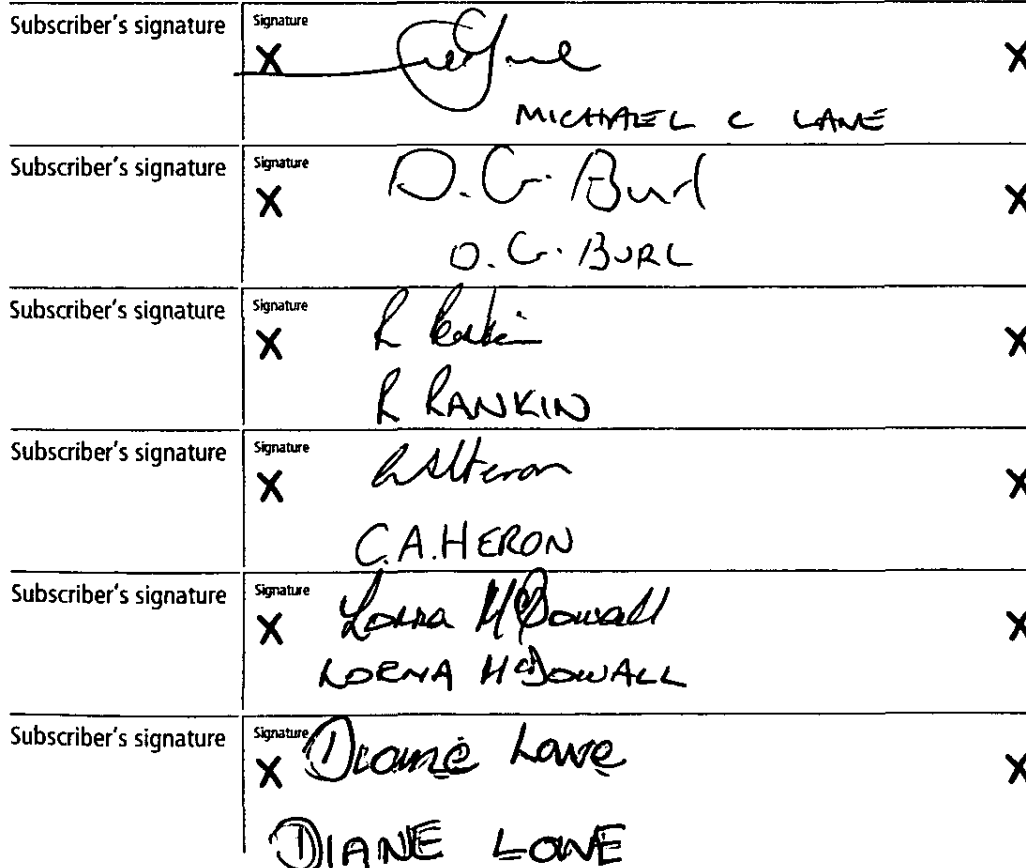 Subscriber's signature
Signature
X X
MICHAEL C LANE
Subscriber's signature
Signature
X D. G. Burl X
D. G. BURL
Subscriber's signature
Signature
X R Rankin X
R RANKIN
Subscriber's signature
Signature
X CAHeron X
C.A.HERON
Subscriber's signature
Signature
X Lorna McDowall X
LORNA McDOWALL
Subscriber's signature
Signature
X Diane Lowe X
DIANE LOWE